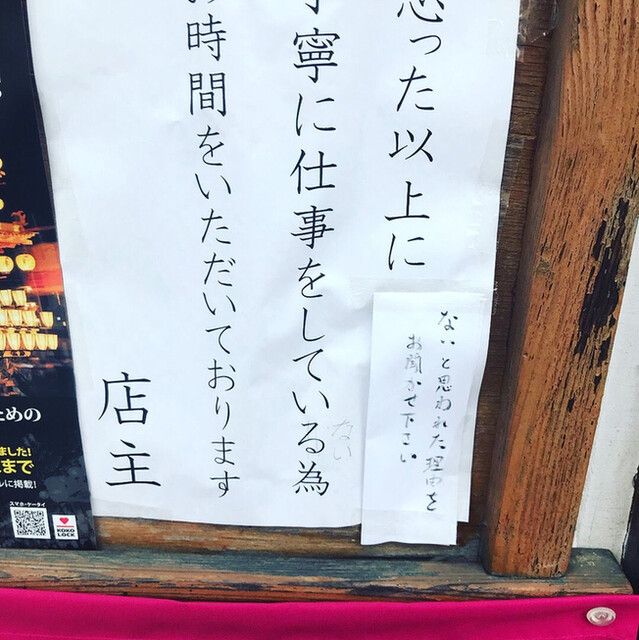 思った以上に
丁寧に仕事をしている為
お時間をいただいております
店主
ない
ないと思われた理由を
お聞かせ下さい
ための
ました!
まで
ルに掲載!
スマホ・ケータイ
KOKO
LOCK